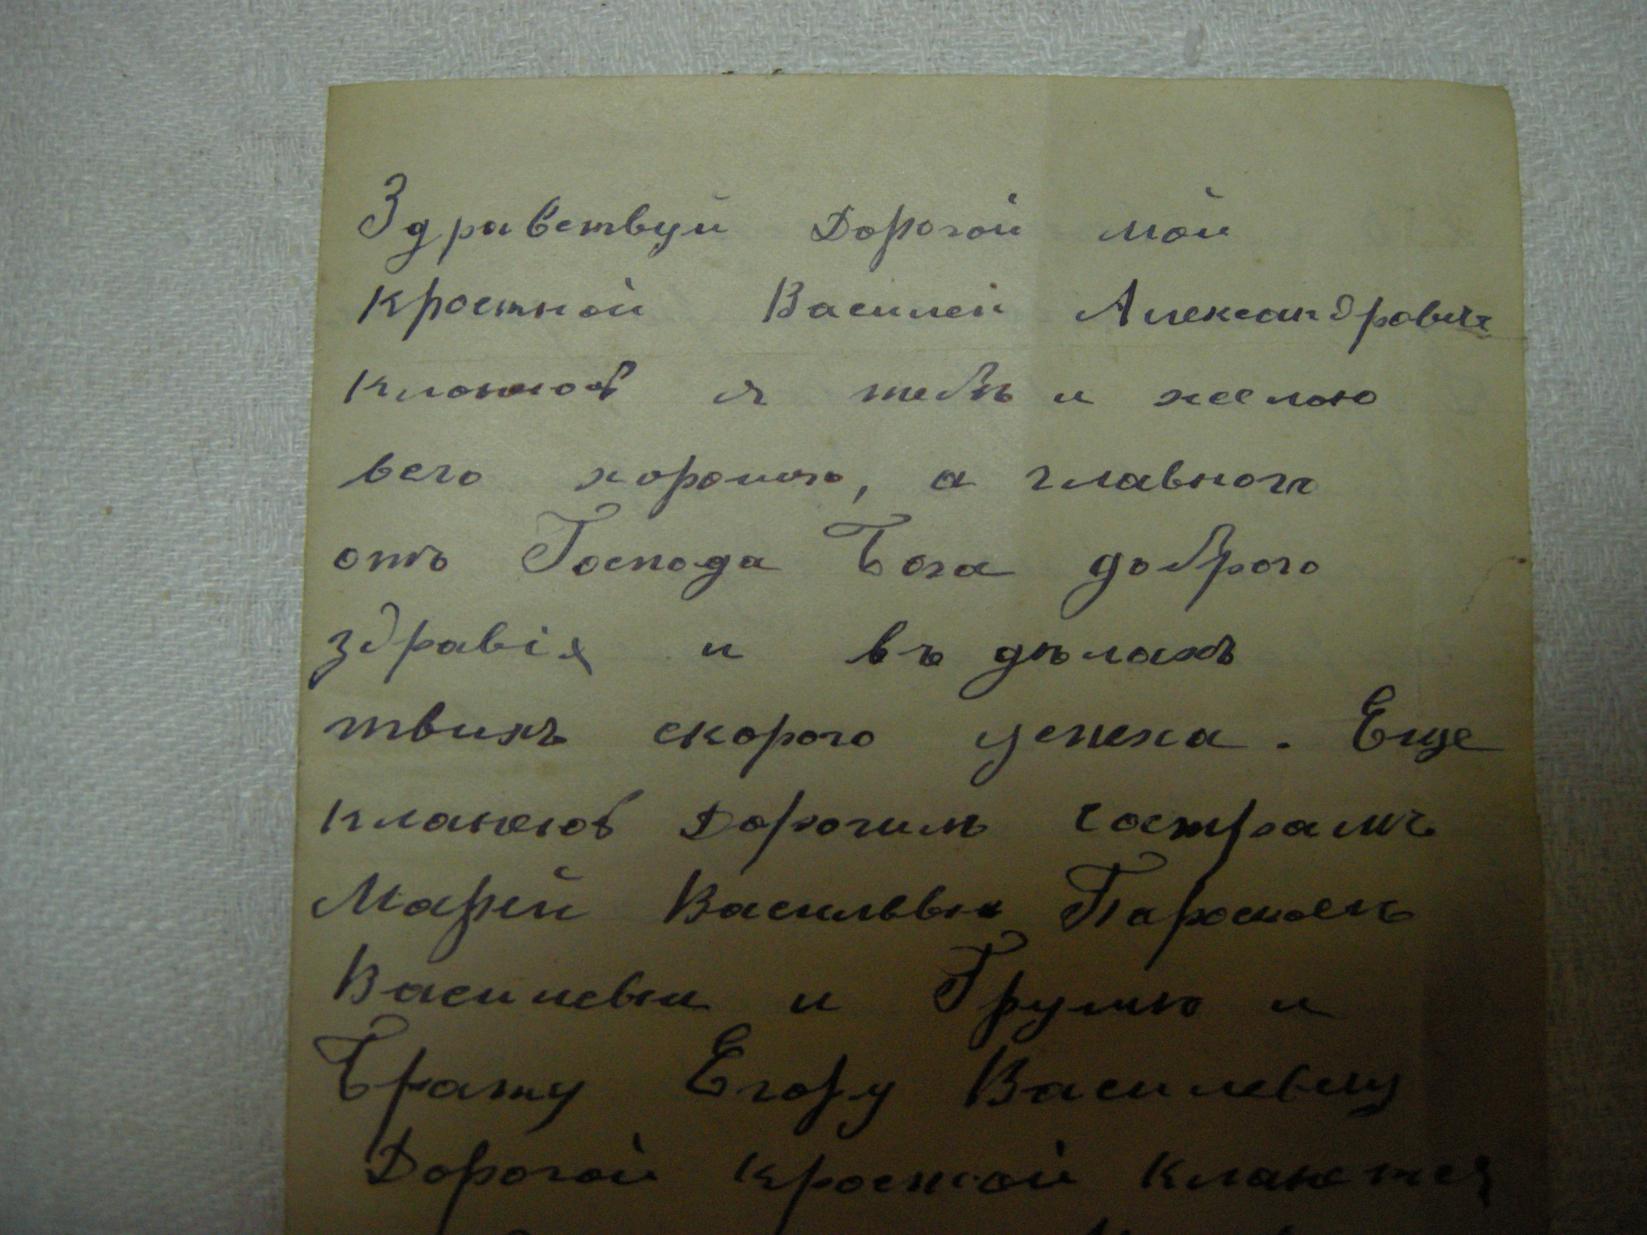 Здравствуй Дорогой мой
Кростной Василей Александровичъ
Кланюсь я тебѣ и желаю
всего хорошого, а главного
отъ Господа Бога доброго
здравія и въ дѣлахъ
твоихъ скорого успеха. Еще
кланеюсь Дорогимъ сострамъ
Марѣи Василевны
Василевны и Грушѣ и
Брату Егору Василевичу
Дорогой Кросной Кланятся